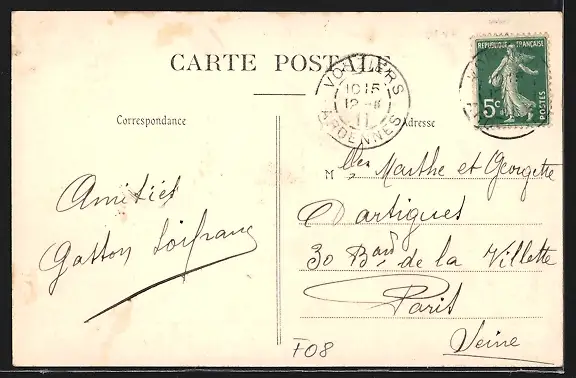 CARTE POSTALE
REPUBLIQUE FRANÇAISE
5c
POSTES
VOUZIERS
10 15
12 - 8
11
ARDENNES
Correspondance
Adresse
Amitiés
Gaston
Mlles Marthe et Georgette
Dartigues
30 Bard de la Villette
Paris
Seine
F08